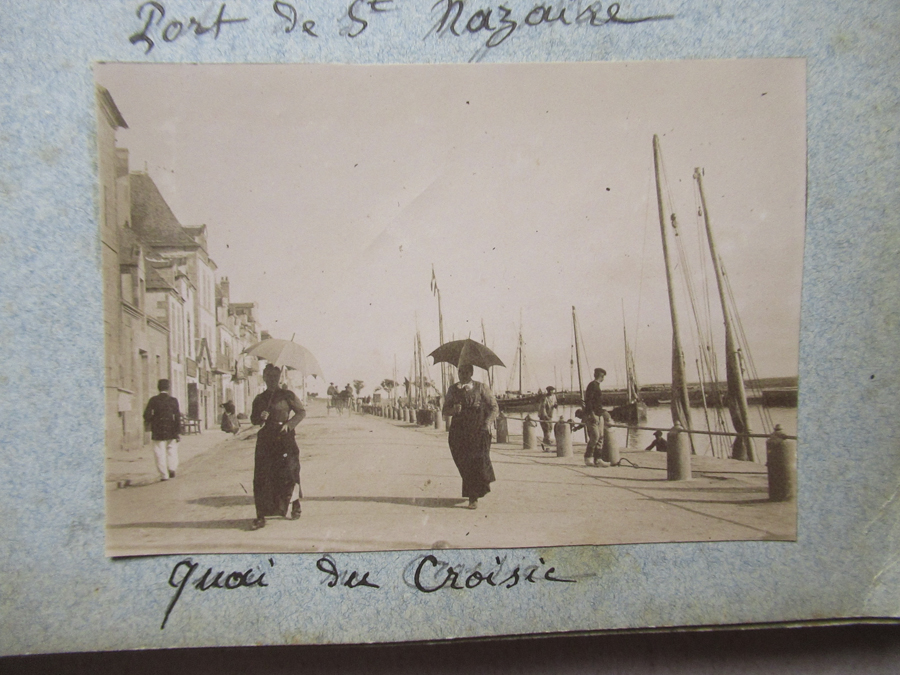 Port de St Nazaire
Quai du Croisic